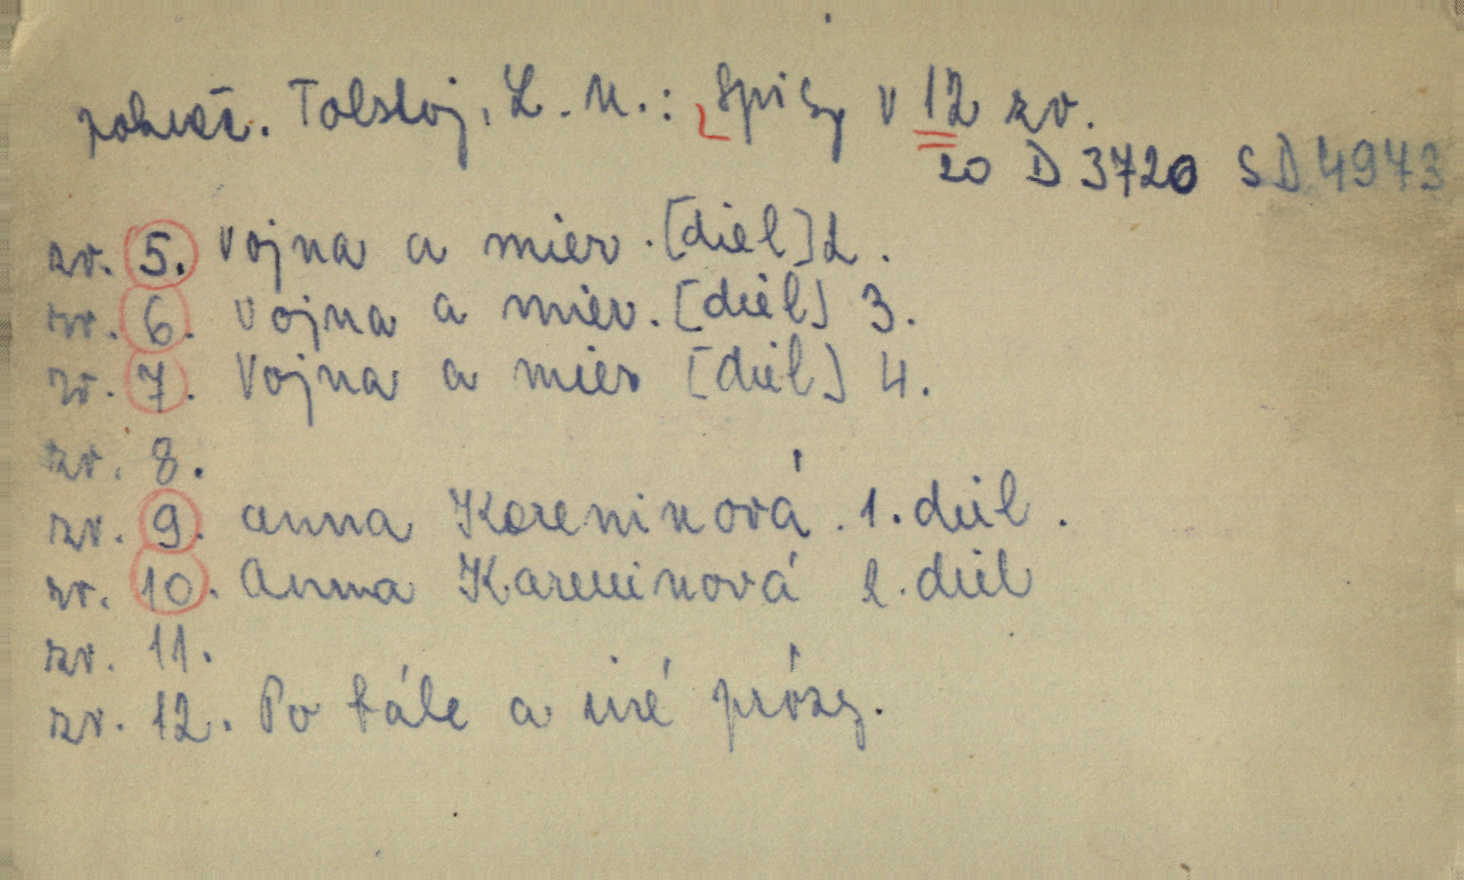 pokrač. Tolstoj, L. N.: Spisy v 12 zv.
20 D 3720 SD 4973
zv. 5. Vojna a mier. [diel] 2.
zv. 6. Vojna a mier. [diel] 3.
zv. 7. Vojna a mier [diel] 4.
zv. 8.
zv. 9. Anna Kareninová. 1. diel.
zv. 10. Anna Kareninová 2. diel
zv. 11.
zv. 12. Po bále a iné prózy.